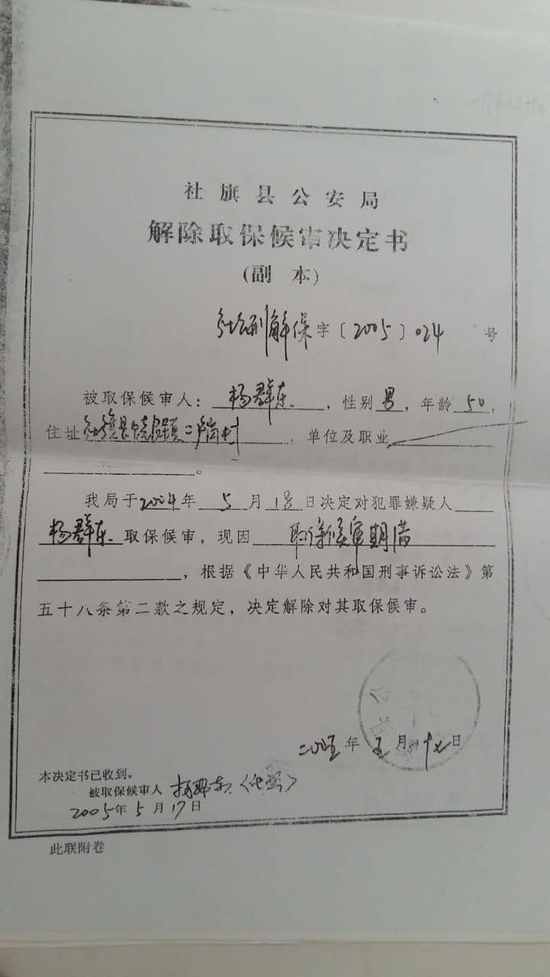 社旗县公安局
解除取保候审决定书
(副本)
社公刑解保字〔2005〕024号
被取保候审人：杨群东，性别男，年龄50，
住址社旗县饶良镇二户岗村，单位及职业
。
我局于2004年5月18日决定对犯罪嫌疑人
杨群东取保候审，现因取保候审期满
，根据《中华人民共和国刑事诉讼法》第
五十八条第二款之规定，决定解除对其取保候审。
二00五年五月十七日
本决定书已收到。
被取保候审人 杨群东
2005年5月17日
此联附卷